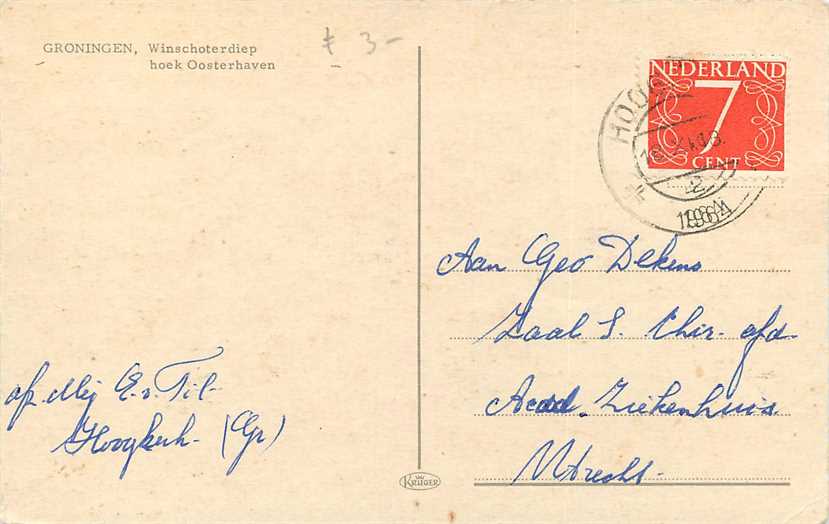 GRONINGEN, Winschoterdiep
hoek Oosterhaven
3-
NEDERLAND
7
CENT
HOOG
2
Aan Geo Dekens
Zaal S. Chir. afd.
Acad. Ziekenhuis
Utrecht.
afz. Mej E. v. Til-
Hoogkerk- (Gr)
KRUGER